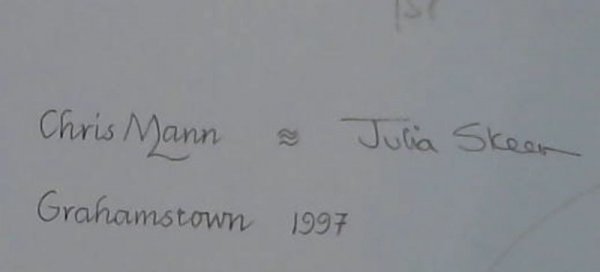 Chris Mann ≈ Julia Skeen
Grahamstown 1997